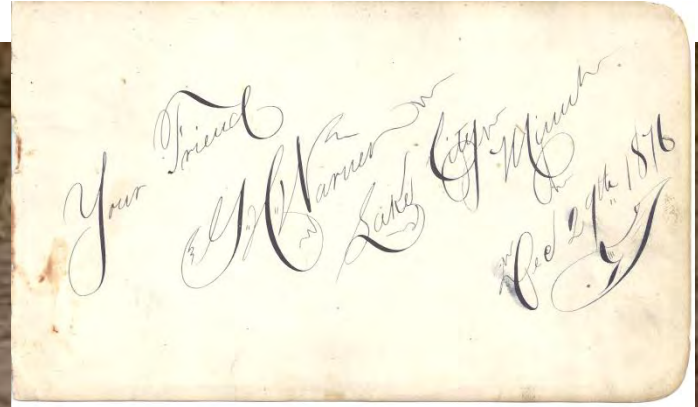 Your Friend
G. H. Warner
Lake City Minn.
Dec 29th 1876